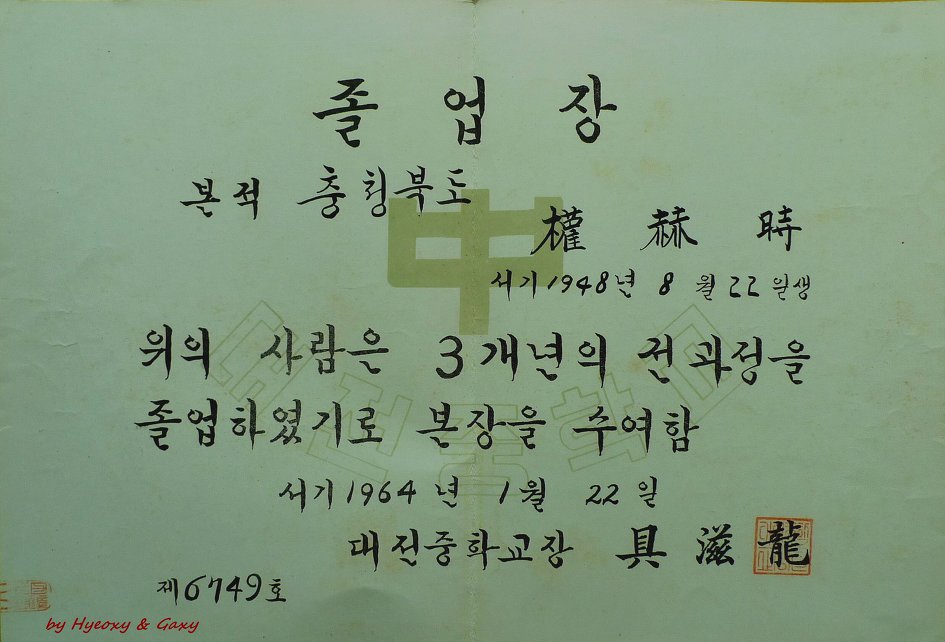 졸업장
본적 충청북도
權赫時
서기1948년 8월 22일생
위의 사람은 3개년의 전과정을
졸업하였기로 본장을 수여함
서기1964년 1월 22일
대전중학교장 具滋龍
제6749호
by Hyeoxy & Gaxy
中
대전중학교